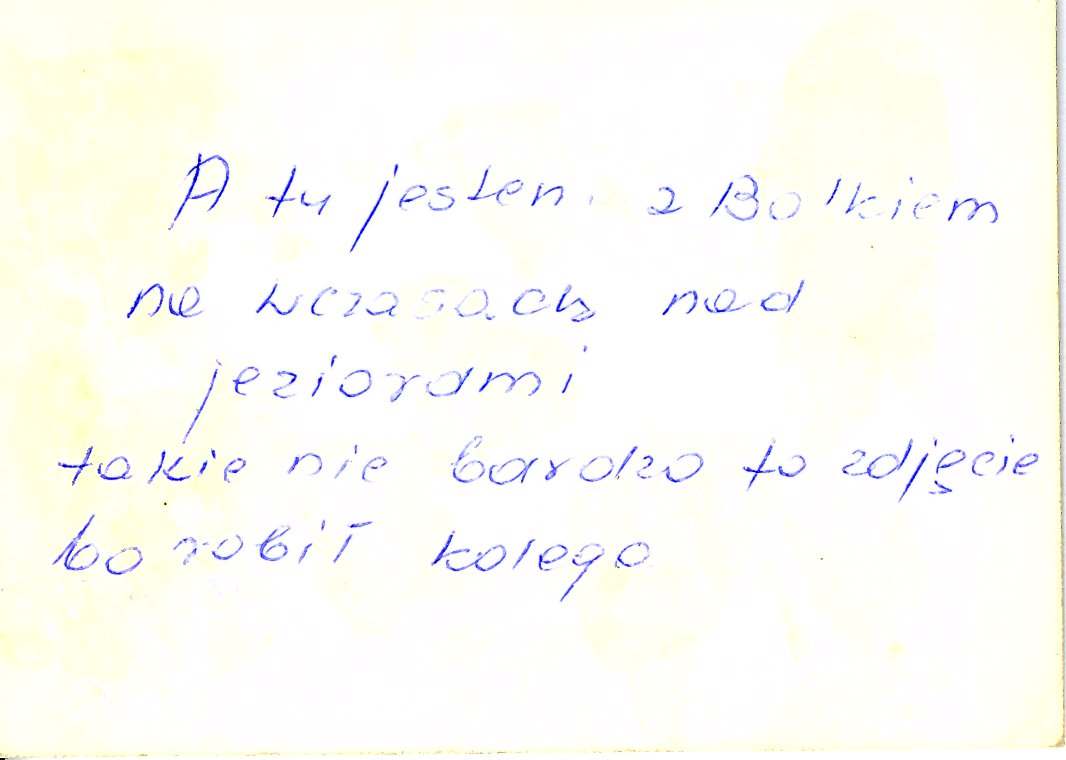 A tu jestem z Bolkiem
na wczasach nad
jeziorami
takie nie bardzo to zdjęcie
bo robił kolega